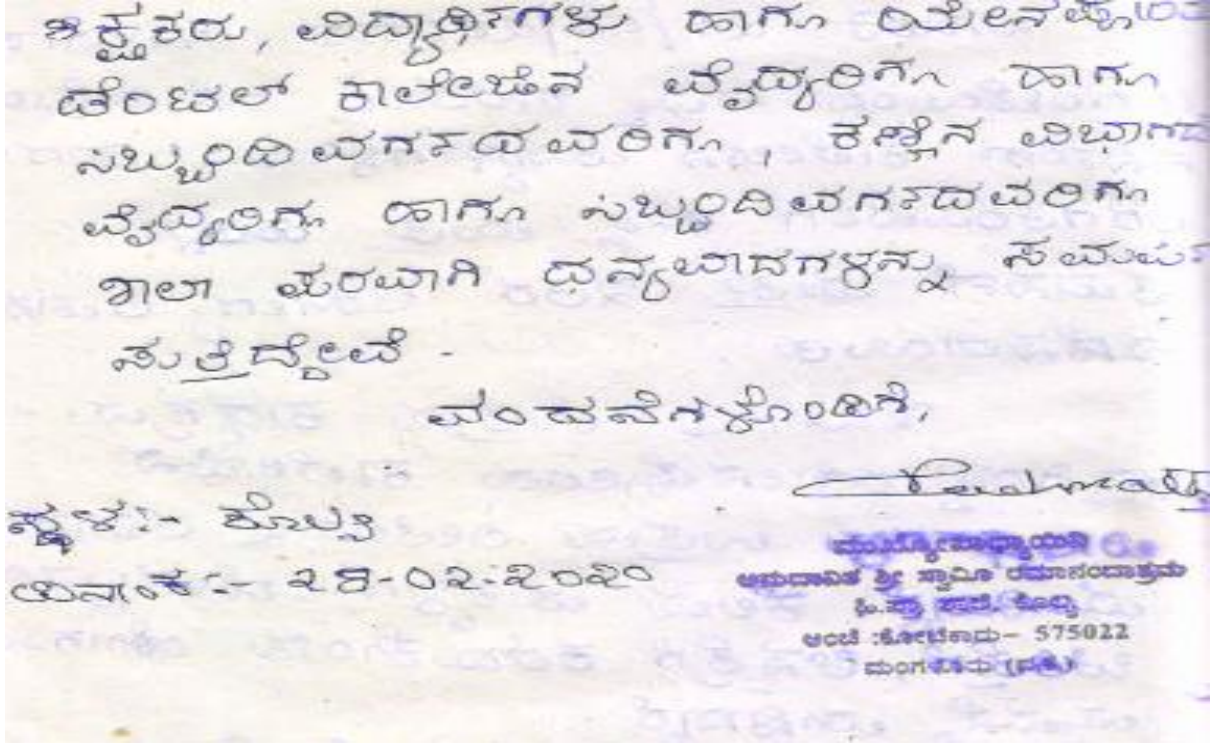 ಶಿಕ್ಷಕರು, ವಿದ್ಯಾರ್ಥಿಗಳು ಹಾಗೂ ಯೇನಪೋಯ
ಡೆಂಟಲ್ ಕಾಲೇಜಿನ ವೈದ್ಯರಿಗೂ ಹಾಗೂ
ಸಿಬ್ಬಂದಿ ವರ್ಗದವರಿಗೂ, ಕಣ್ಣಿನ ವಿಭಾಗದ
ವೈದ್ಯರಿಗೂ ಹಾಗೂ ಸಿಬ್ಬಂದಿ ವರ್ಗದವರಿಗೂ
ಶಾಲಾ ಪರವಾಗಿ ಧನ್ಯವಾದಗಳನ್ನು ಸಮರ್ಪಿ
ಸುತ್ತಿದ್ದೇವೆ.
ವಂದನೆಗಳೊಂದಿಗೆ,
ಸ್ಥಳ:- ಕೊಲ್ಯ
ದಿನಾಂಕ:- ೨೮-೦೨-೨೦೨೦
ಮುಖ್ಯೋಪಾಧ್ಯಾಯಿನಿ
ಅನುದಾನಿತ ಶ್ರೀ ಸ್ವಾಮೀ ರಮಾನಂದಾಶ್ರಮ
ಹಿ.ಪ್ರಾ. ಶಾಲೆ, ಕೊಲ್ಯ
ಅಂಚೆ :ಕೋಟೆಕಾರು- 575022
ಮಂಗಳೂರು (ದ.ಕ.)